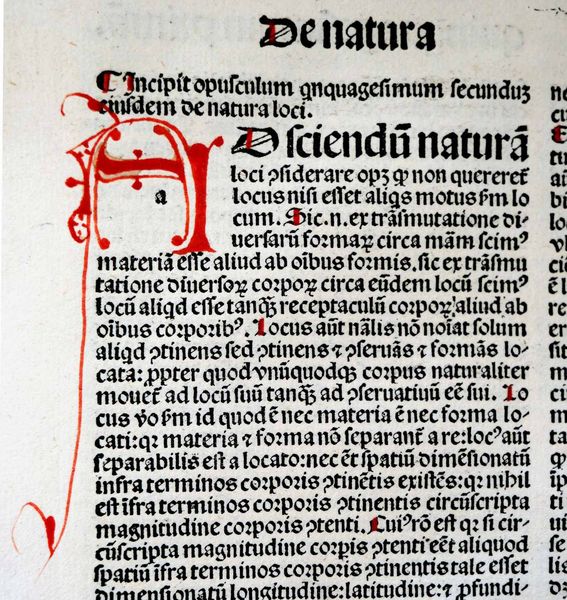 De natura
¶ Incipit opusculum qnquagesimum secunduꝫ
eiusdem de natura loci.
AD sciendū naturā
loci ꝯsiderare opꝫ ꝙ non quereret̄
locus nisi esset aliqs motus ẜm lo
cum. Sic.n. ex trāsmutatione di-
a
uersarū formaꝝ circa mām scimꝰ
materiā esse aliud ab oībus formis. sic ex trāsmu
tatione diuersoꝝ corpoꝝ circa eūdem locū scimꝰ
locū aliqd esse tanꝗꝫ receptaculū corpoꝝ aliud ab
oībus corporibꝰ. Locus aūt nālis nō noīat solum
aliqd ꝯtinens sed ꝯtinens ⁊ ꝯseruās ⁊ formās lo-
cata: ꝓpter quod vnūquodqꝫ corpus naturaliter
mouet̄ ad locū suū tanꝗꝫ ad ꝯseruatiuū eē sui. Lo
cus v̄o ẜm id quod ē nec materia ē nec forma lo-
cati: qꝛ materia ⁊ forma nō separant̄ a re: locꝰ aūt
separabilis est a locato: nec ēt spatiū dimēsionatū
infra terminos corporis ꝯtinētis existēs: qꝛ nihil
est īfra terminos corporis ꝯtinentis circūscripta
magnitudine corporis ꝯtenti. Cuiꝰ rō est qꝛ si cir-
cūscripta magnitudine corpīs ꝯtenti eēt aliquod
spatiū īfra terminos corporis ꝯtinentis tale esset
dimensionatū longitudine: latitudine: ⁊ ꝓfundi-